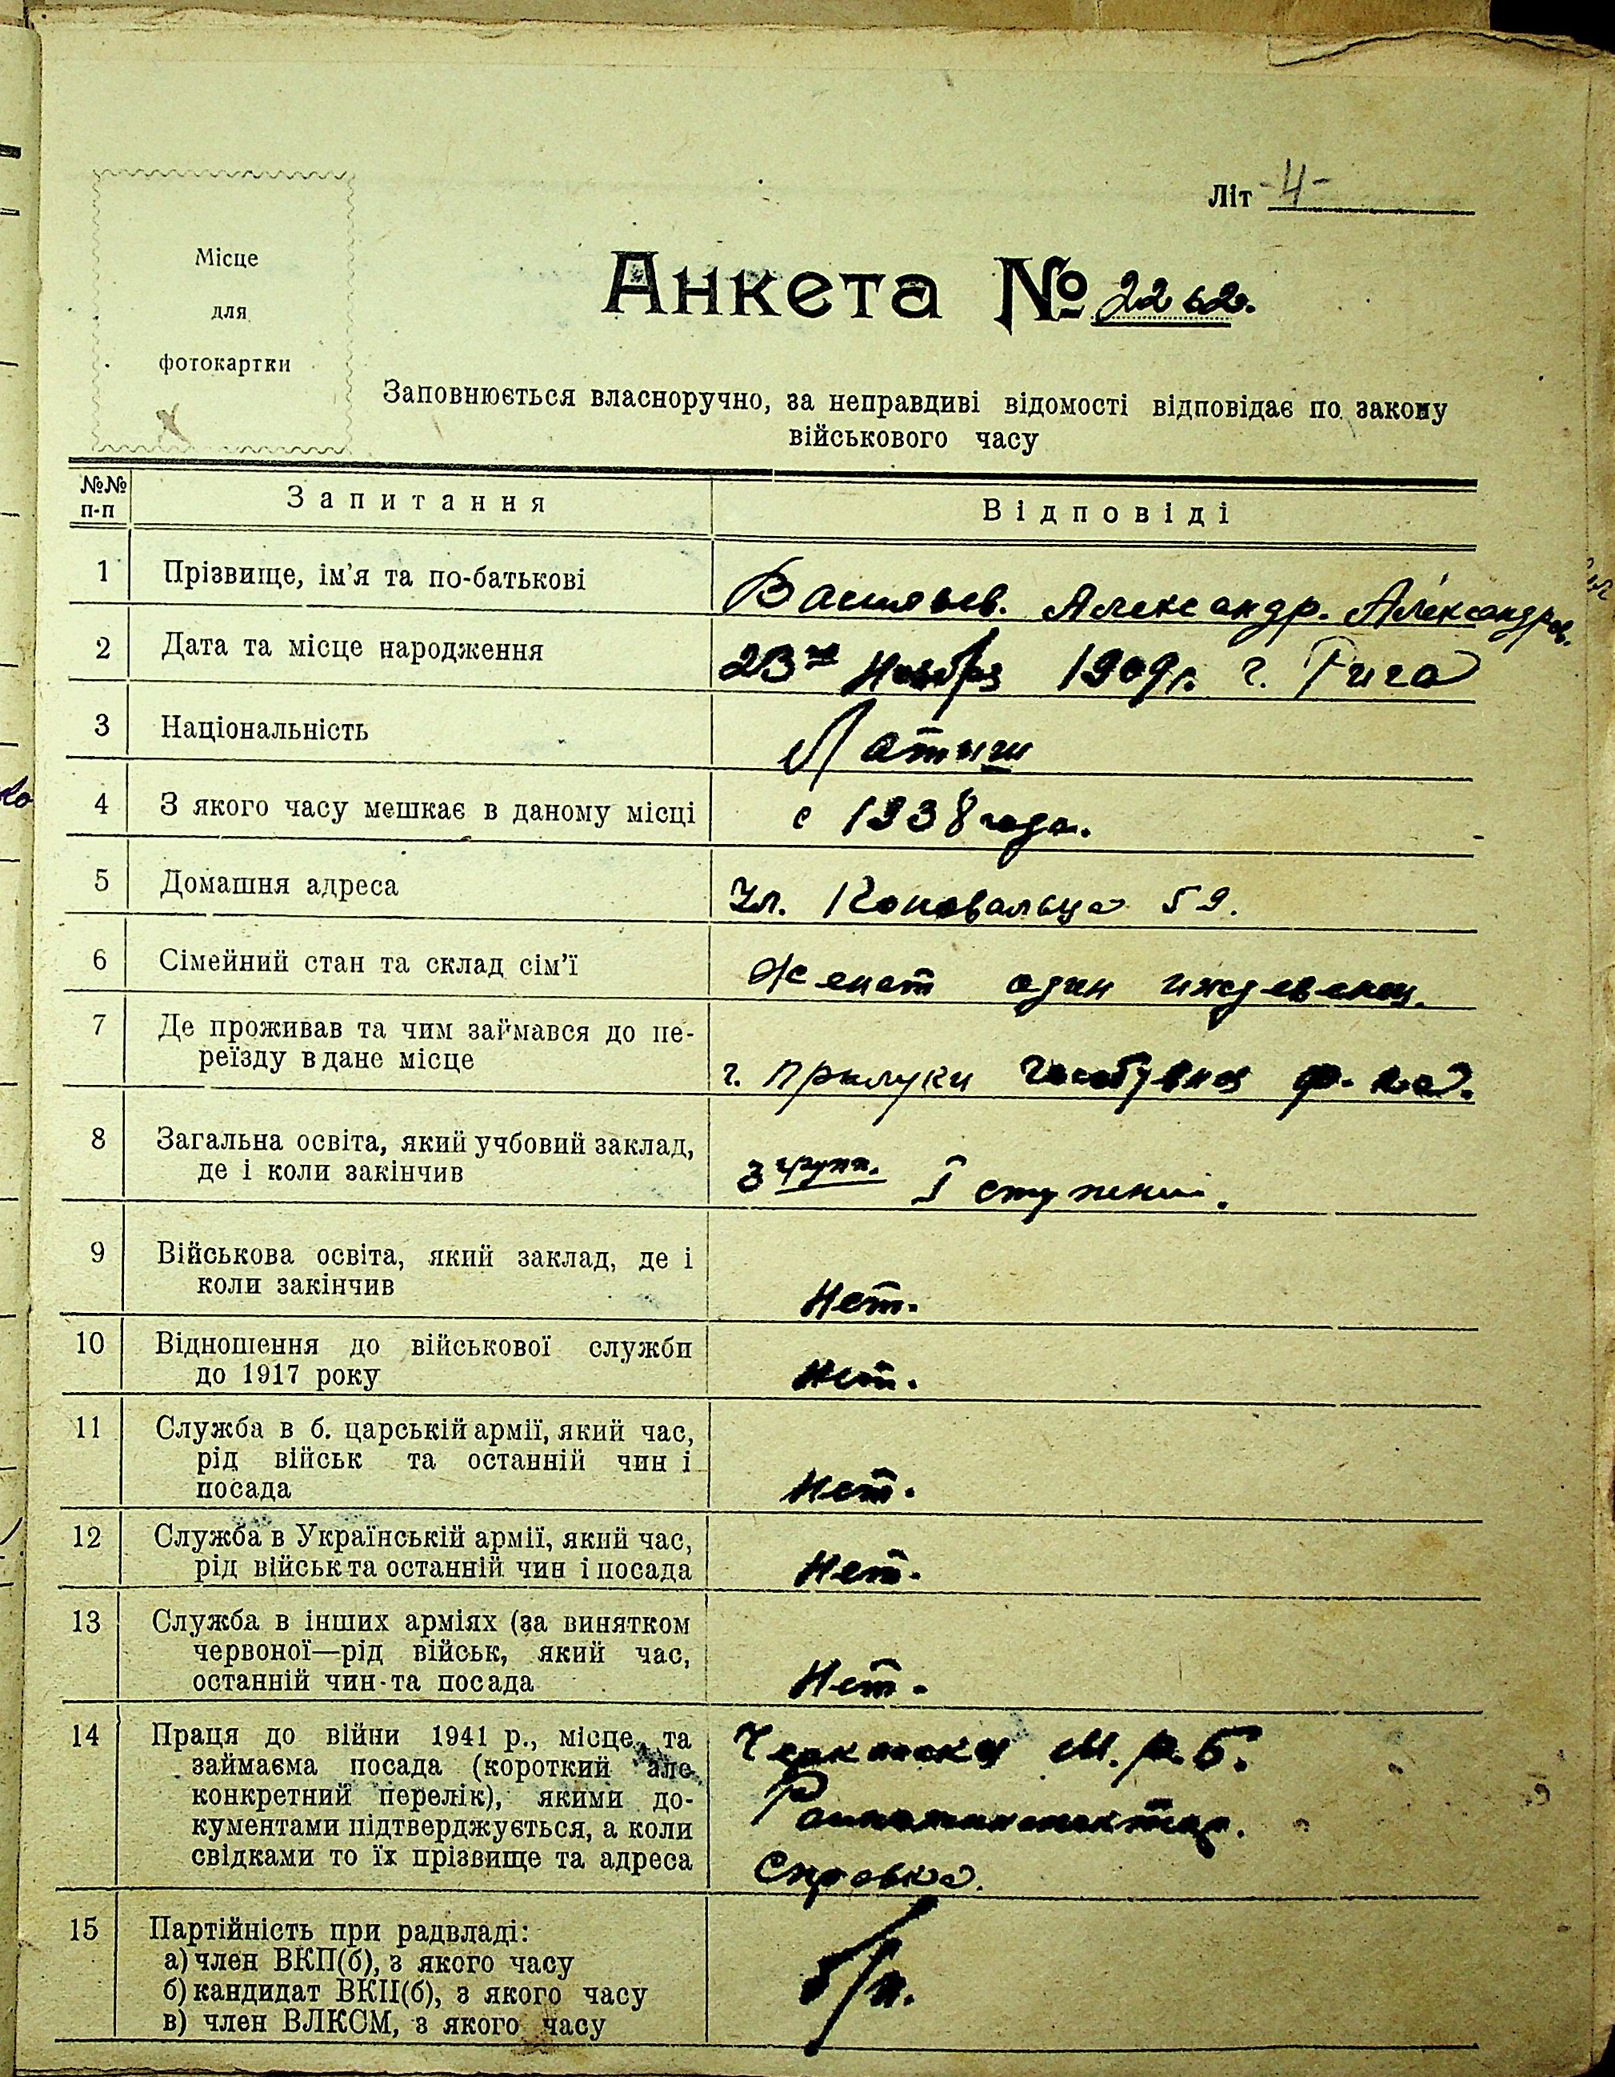 Літ -4-
Місце
для
фотокартки
Анкета № 2262.
Заповнюється власноручно, за неправдиві відомості відповідає по закону
військового часу
№№ п-п
Запитання
Відповіді
1 Прізвище, ім'я та по-батькові
Васильев. Александр. Александров.
2 Дата та місце народження
23го Ноября 1909г. г. Рига
3 Національність
Латыш
4 З якого часу мешкає в даному місці
с 1938 года.
5 Домашня адреса
Ул. Коновальца 59.
6 Сімейний стан та склад сім'ї
Женат один иждевенец.
7 Де проживав та чим займався до пе-
реїзду в дане місце
г. Прилуки ф-ка.
8 Загальна освіта, який учбовий заклад,
де і коли закінчив
3 групп. I ступени.
9 Військова освіта, який заклад, де і
коли закінчив
Нет.
10 Відношення до військової служби
до 1917 року
Нет.
11 Служба в б. царській армії, який час,
рід військ та останній чин і
посада
Нет.
12 Служба в Українській армії, який час,
рід військ та останній чин і посада
Нет.
13 Служба в інших арміях (за винятком
червоної—рід військ, який час,
останній чин та посада
Нет.
14 Праця до війни 1941 р., місце, та
займаєма посада (короткий але
конкретний перелік), якими до-
кументами підтверджується, а коли
свідками то їх прізвище та адреса
М.Р.Б.
Справка.
15 Партійність при радвладі:
а) член ВКП(б), з якого часу
б) кандидат ВКП(б), з якого часу
в) член ВЛКСМ, з якого часу
б/п.